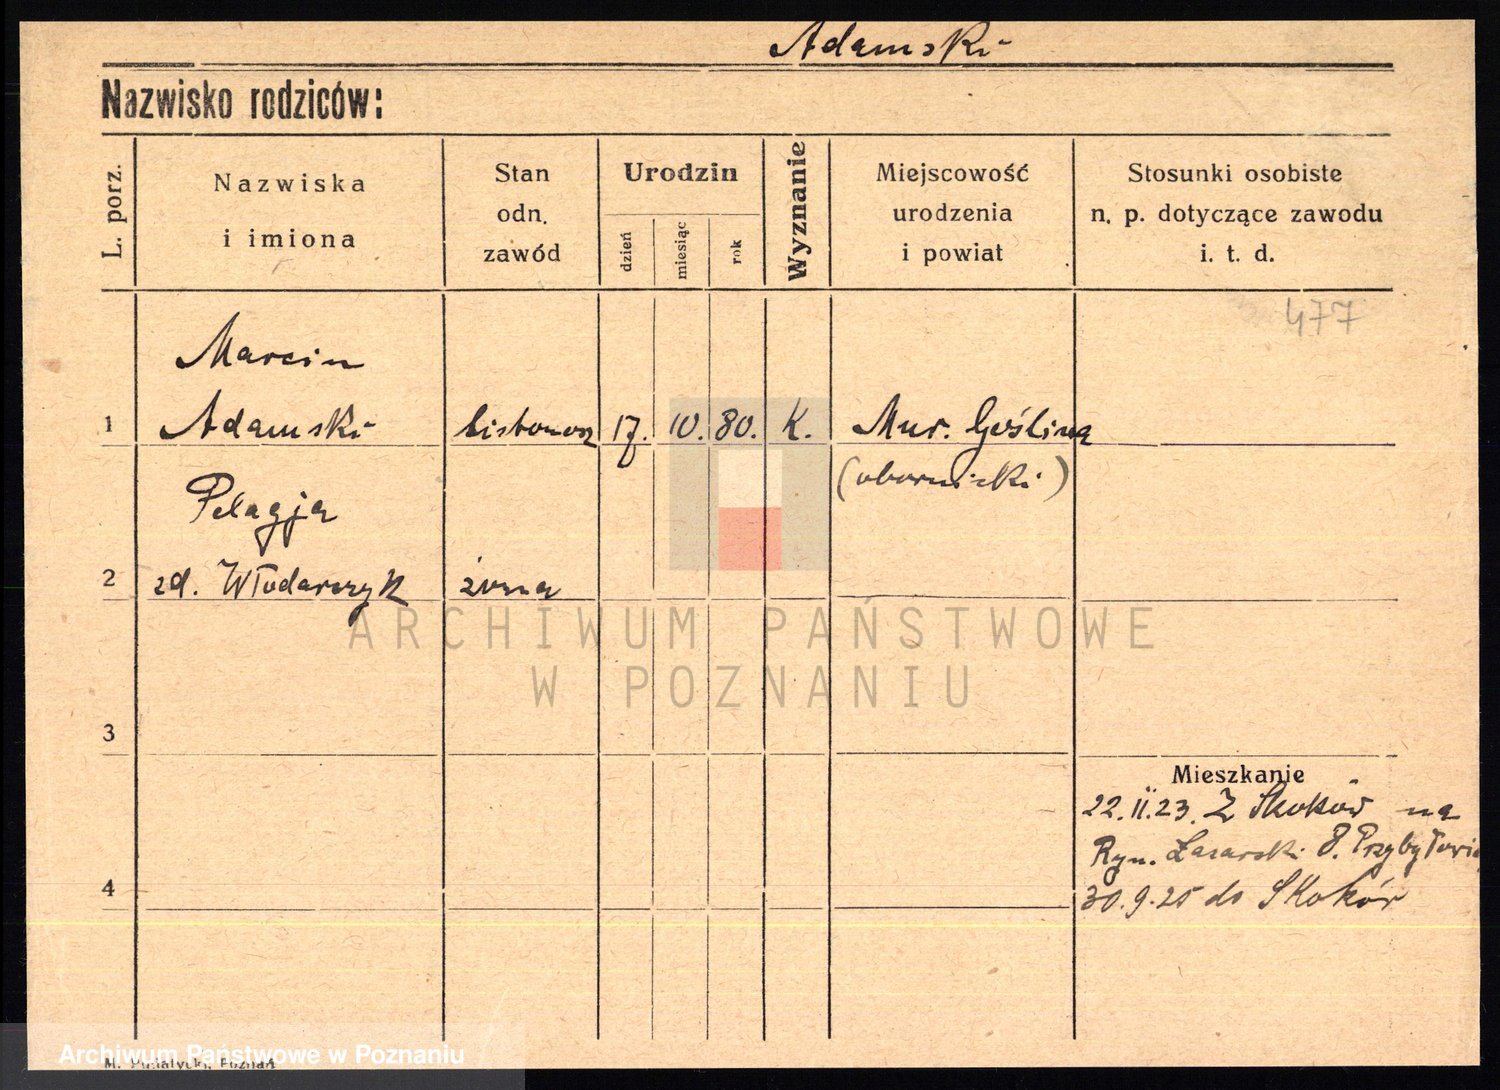 Adamski
Nazwisko rodziców:
L. porz.
Nazwiska
i imiona
Stan
odn.
zawód
Urodzin
dzień
miesiąc
rok
Wyznanie
Miejscowość
urodzenia
i powiat
Stosunki osobiste
n. p. dotyczące zawodu
i. t. d.
477
Marcin
1 Adamski listonosz 17. 10. 80. K. Mur. Goślina
(obornicki)
Pelagja
2 zd. Włodarczyk żona
ARCHIWUM PAŃSTWOWE
W POZNANIU
3
Mieszkanie
22.II.23. Z Skoków na
Ryn. Łazarski 8.
4
30.9.25 do Skoków
Archiwum Państwowe w Poznaniu
M. Putiatycki, Poznań